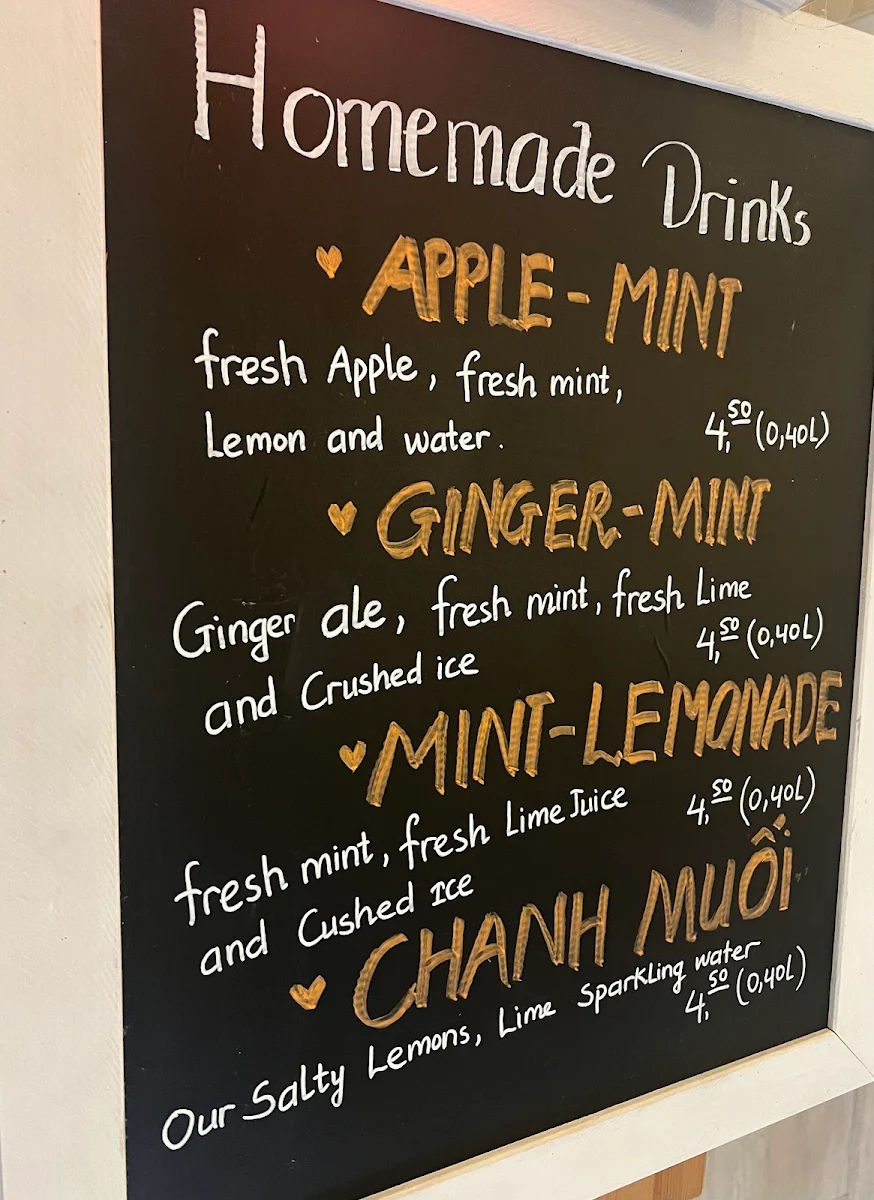 Homemade Drinks
♥ APPLE-MINT
fresh Apple, fresh mint,
Lemon and water.
4,50 (0,40L)
♥ GINGER-MINT
Ginger ale, fresh mint, fresh Lime
and Crushed ice
4,50 (0,40L)
♥ MINT-LEMONADE
fresh mint, fresh Lime Juice
and Cushed Ice
4,50 (0,40L)
♥ CHANH MUỐI
Our Salty Lemons, Lime Sparkling water
4,50 (0,40L)